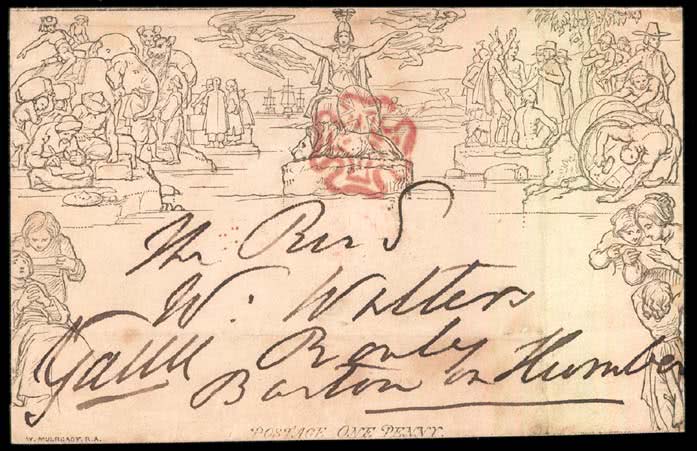 The Revd
W. Walters
Barton on Humber
POSTAGE ONE PENNY.
W. MULREADY, R.A.